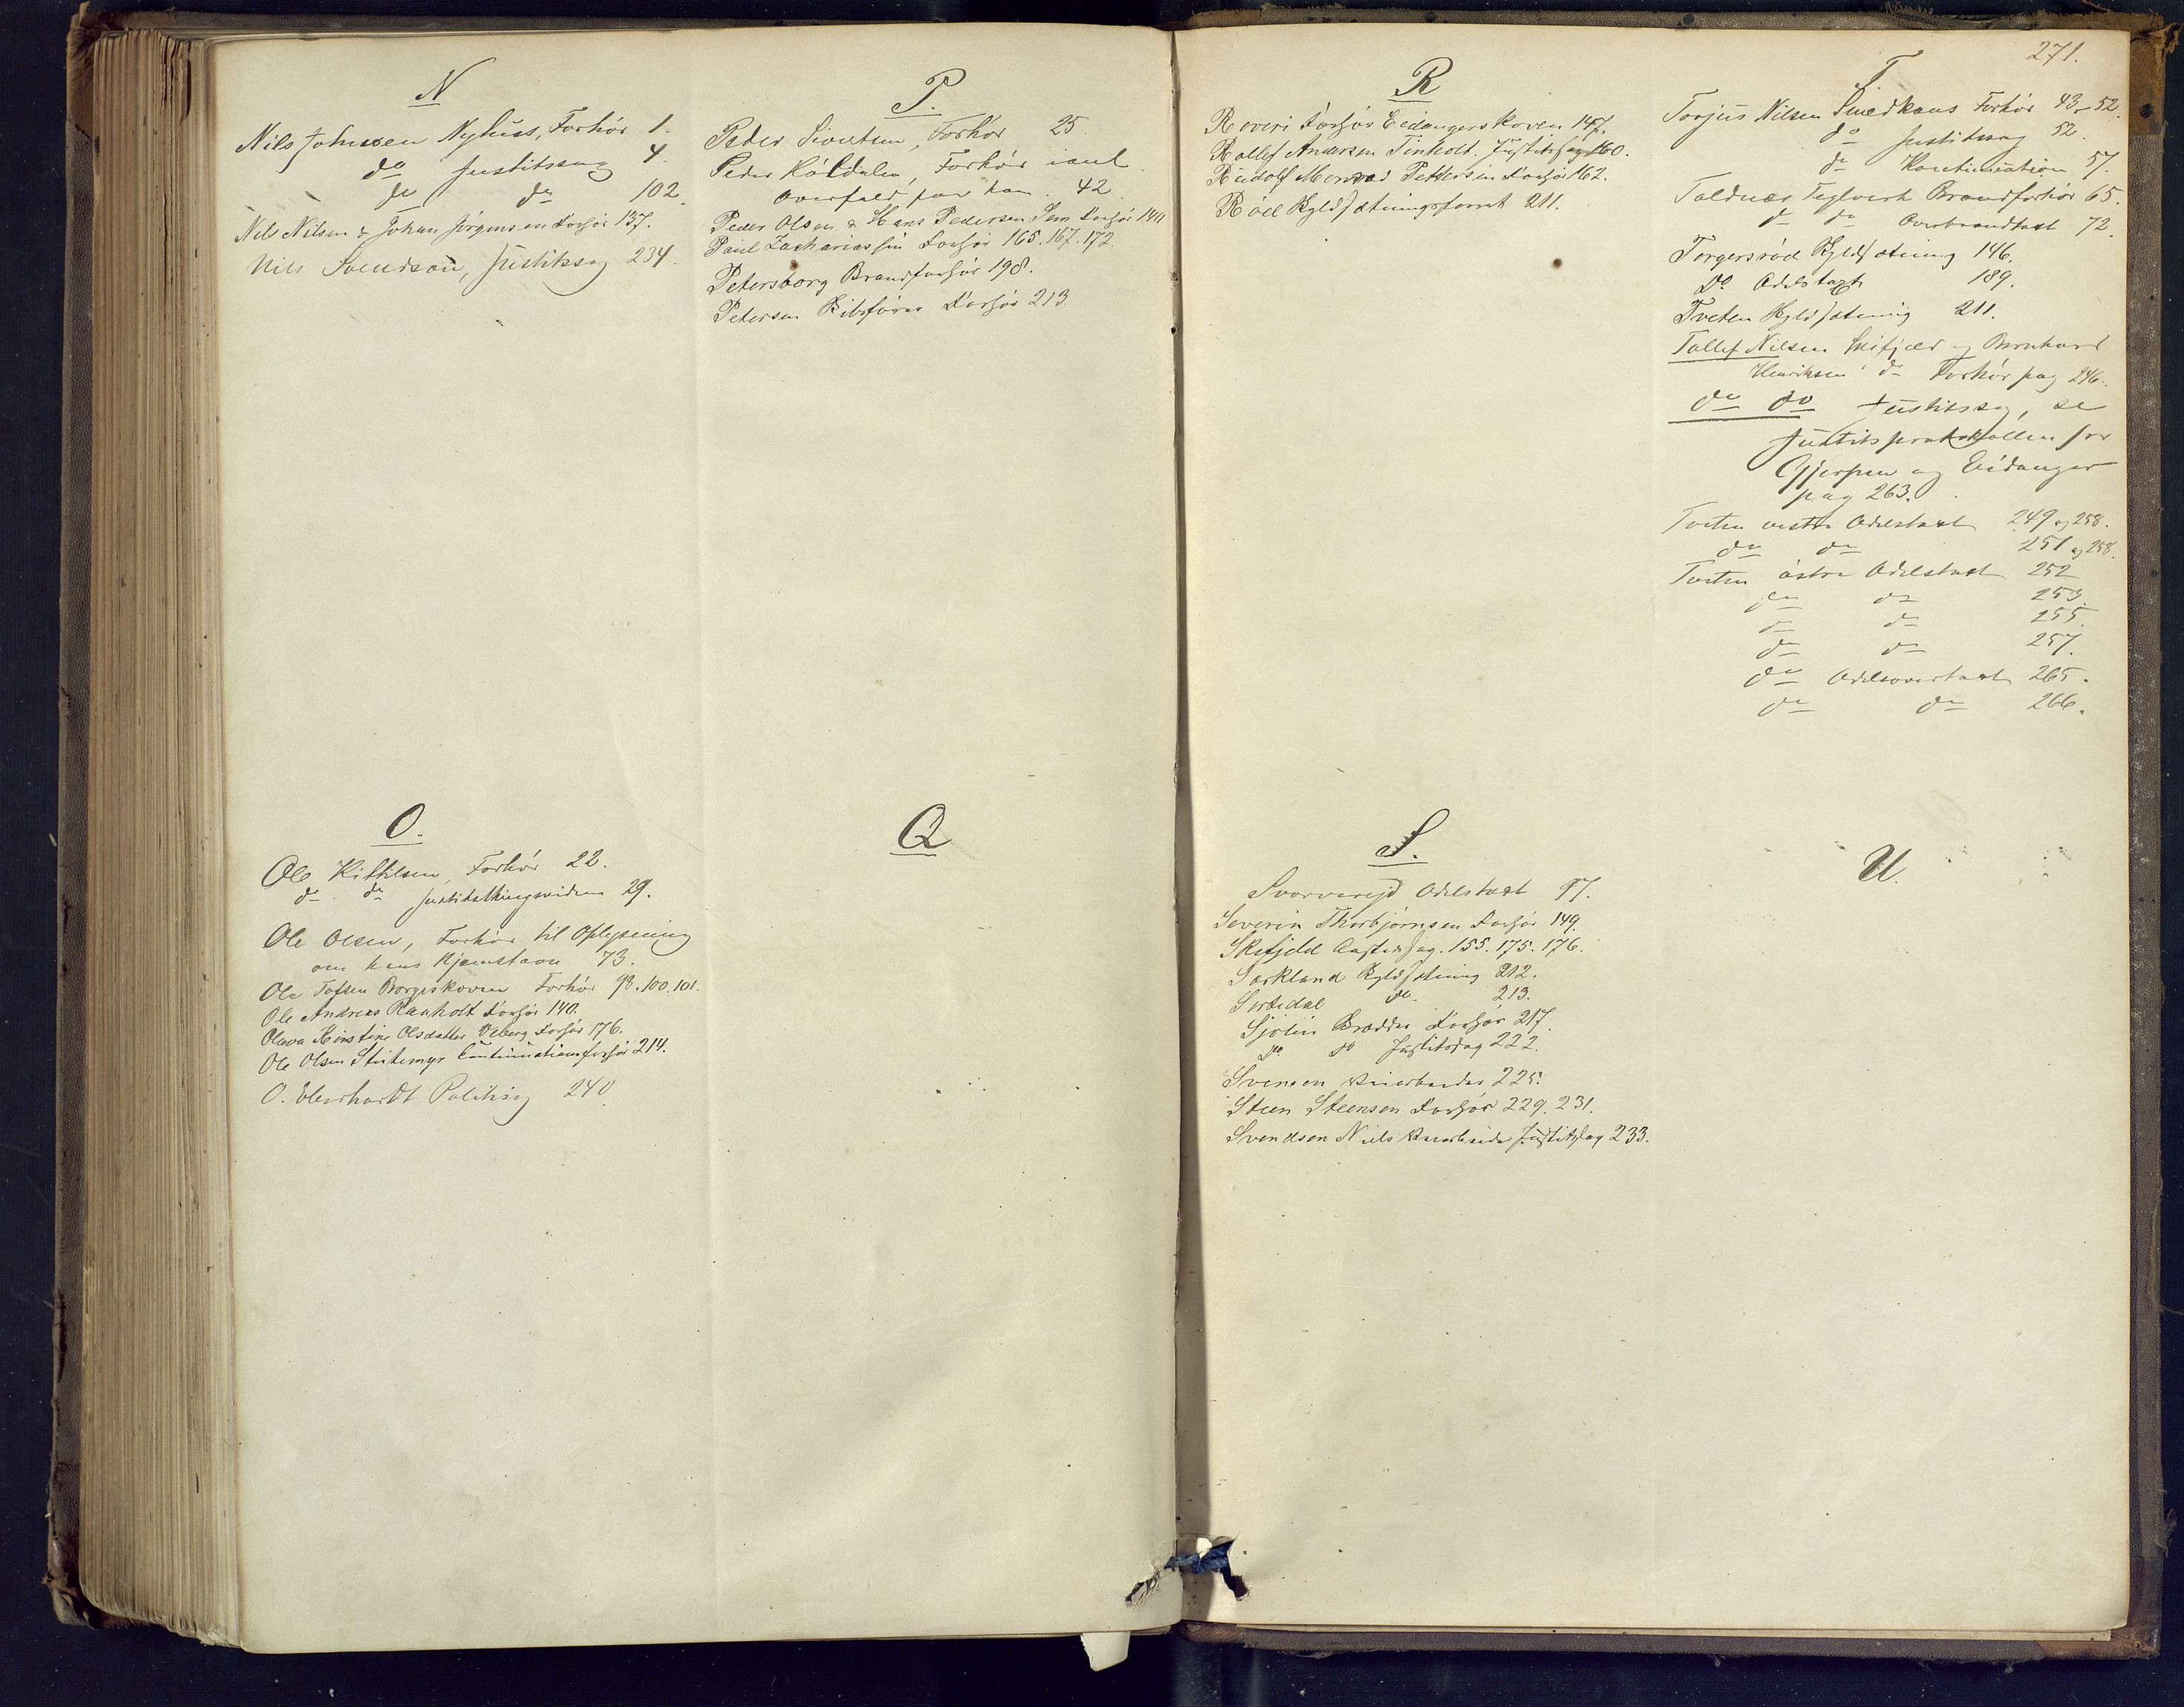 N
Nils Johnsen Nyhuus, Forhör 1.
do Justitssag 4.
do do 102.
Nils Nilsen & Johan Jörgensen Forhör 137.
Nils Svendsen, Justitssag 234.
O.
Ole Kittilsen, Forhör 22.
do do 29.
Ole Olsen, Forhör til Oplysning
om hans Hjemstavn 73.
Ole Tofsen Borgeskoven Forhör 98. 100. 101.
Ole Andreas Ranholt Forhör 140.
Olava Kirstine Olsdatter Forhör 176.
Ole Olsen Stutemyr Continuationsforhör 214.
O. Eberhardt Politisag 240
P.
Peder Sivertsen, Forhör 25.
Peder Forhör
Overfald paa ham. 42
Peder Olsen & Hans Pedersen Forhör 140
Paul Zachariassen Forhör 165. 167. 172.
Petersborg Brandforhör 198.
Petersen Forhör 213.
Q
271.
R
Röveri Forhör Eidangerskoven 147.
Rollef Andersen Tinholt. Justitssag 160.
Rudolf Pettersen Forhör 162.
Röd Skyldsætningsforret 211.
S.
Odelstaxt 97.
Severin Thorbjörnsen Forhör 149.
Skifjeld 155. 175. 176.
Sorkland Skyldsætning 212.
Sortedal do. 213.
Sjölin Brödder Forhör 217.
Do do Justitssag 222.
Svensen 225.
Steen Steensen Forhör 229. 231.
Svendsen Niels Justitssag 233.
T
Torjus Nilsen Forhör 43-52.
do Justitssag 52.
do Kontinuation 57.
Toldnæs Teglverk Brandforhör 65.
do do Overbrandtaxt 72.
Torgersröd Skyldsætning 146.
Do Odelstaxt 189.
Tveten Skyldsætning 211.
Tollef Nilsen Skifjeld og Bernhard
Henriksen do Forhör pag 246.
do do Justitssag, se
Justitsprotokollen for
Gjerpen og Eidanger
pag 263.
Tveten vestre Odelstaxt 249 og 258.
do do 251 og 258.
Tveten östre Odelstaxt 252
do do 253.
do do 255.
do do 257.
do Odelsovertaxt 265.
do do 266.
U.